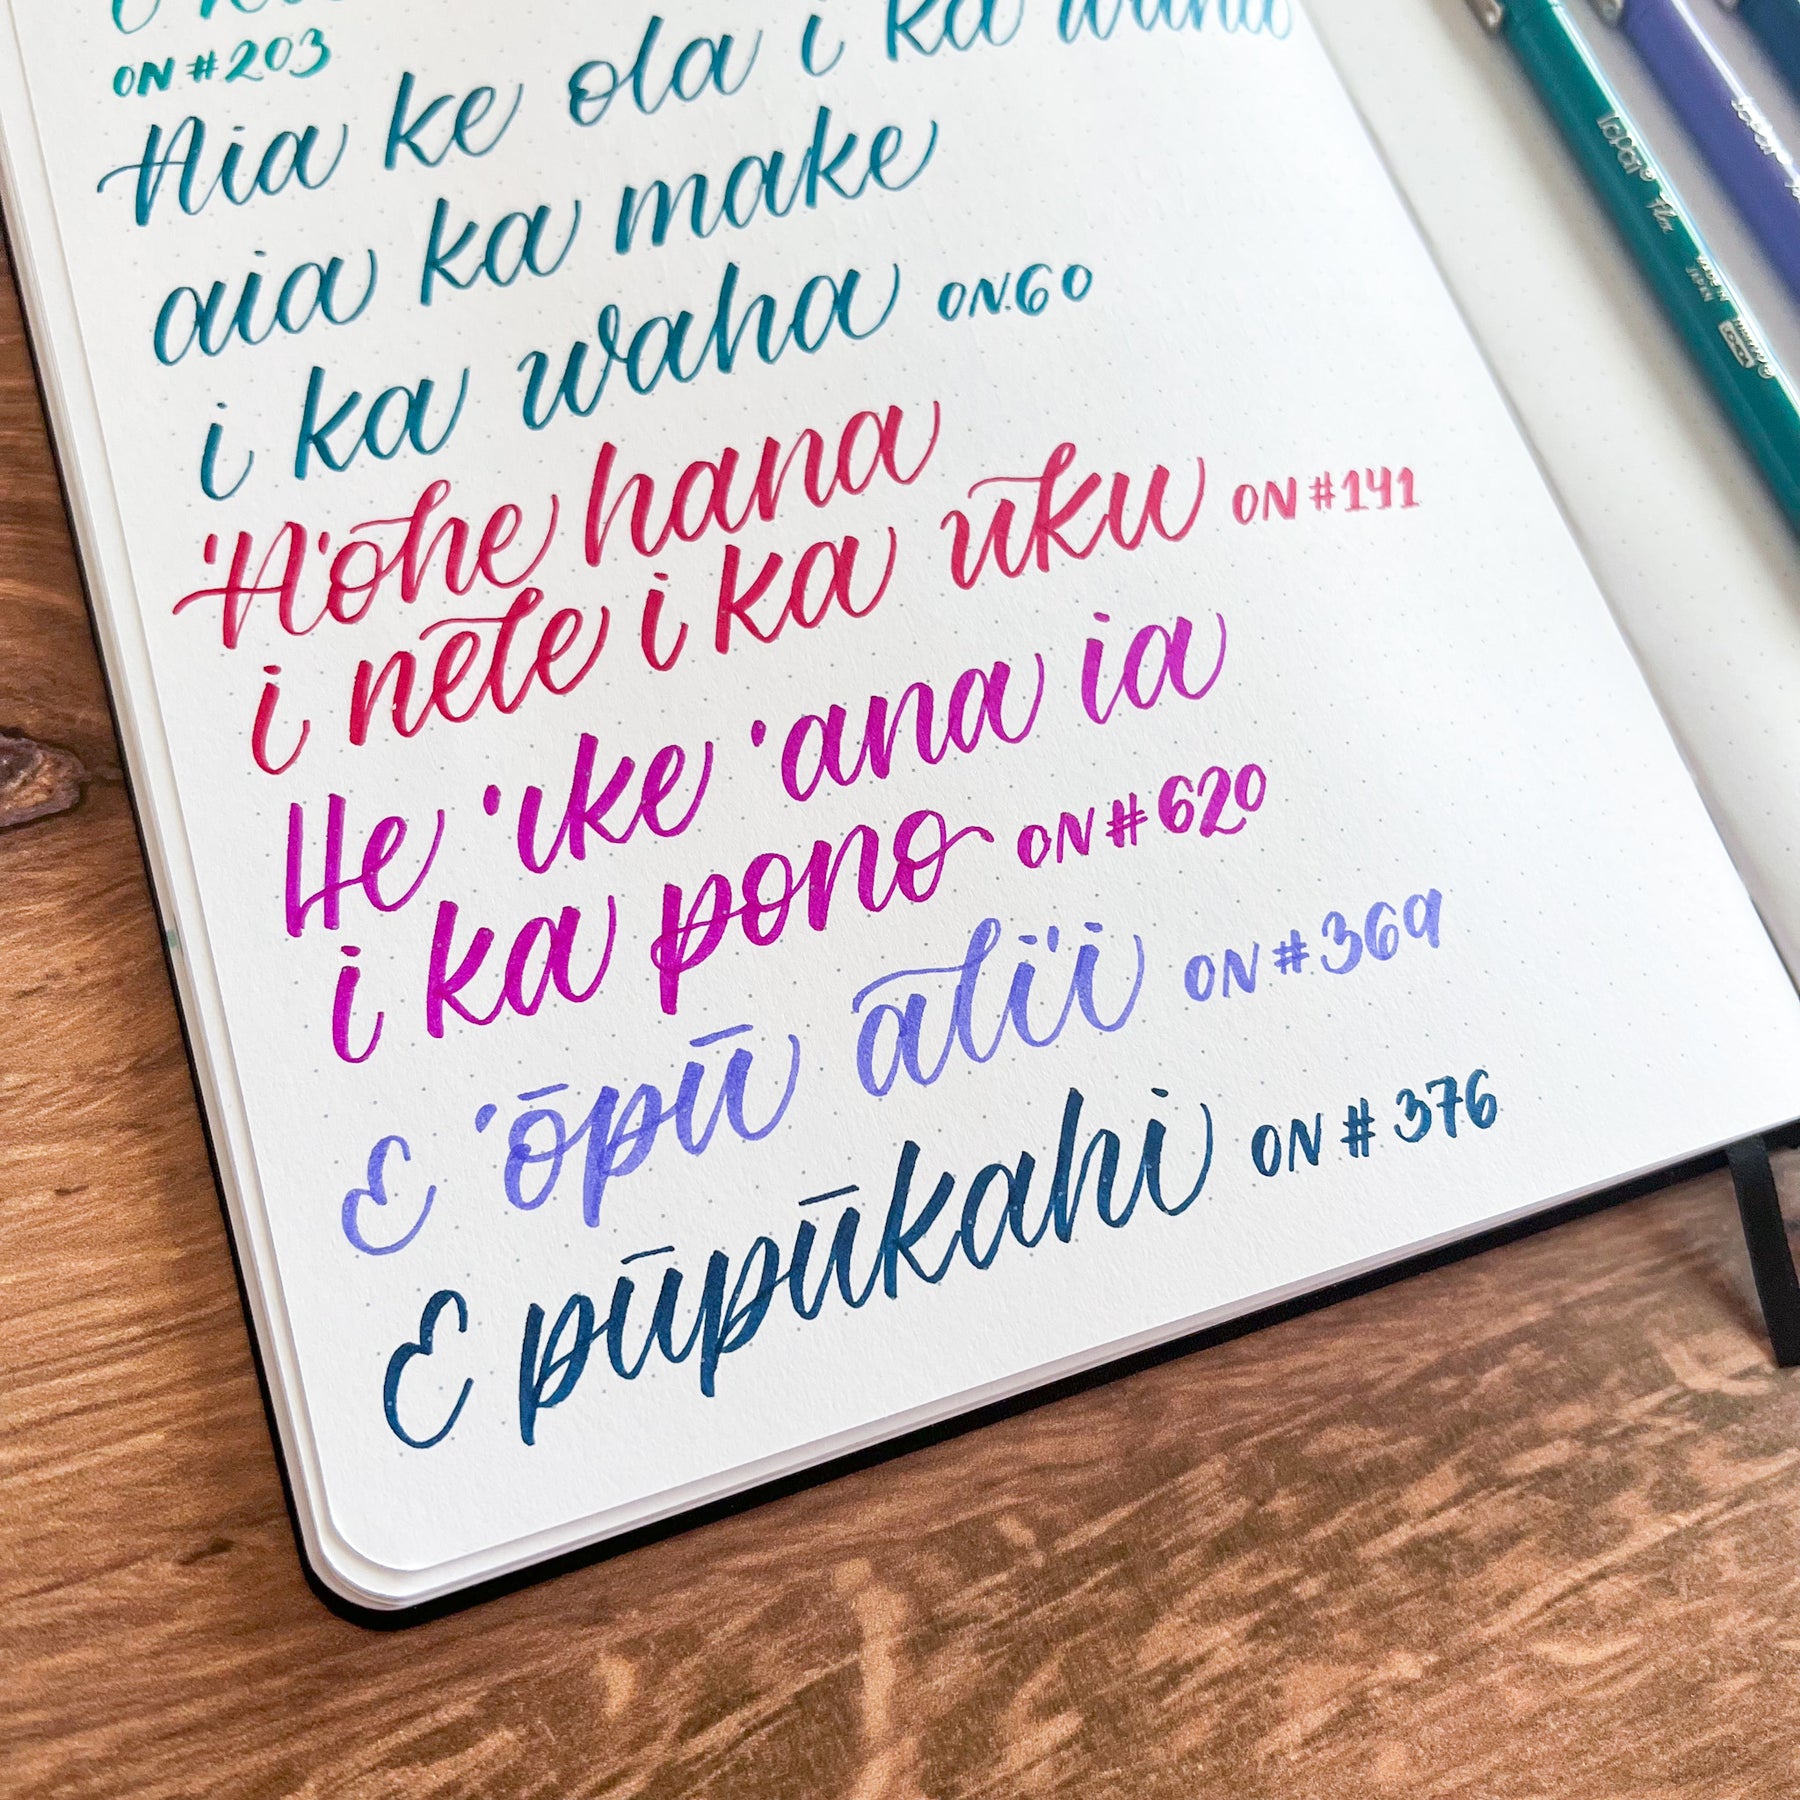 ON #203
Aia ke ola i ka waha
aia ka make
i ka waha ON.60
ʻAʻohe hana
i nele i ka uku ON #141
He ʻike ʻana ia
i ka pono ON #620
E ʻōpū aliʻi ON #369
E pūpūkahi ON # 376
MADE IN
JAPAN